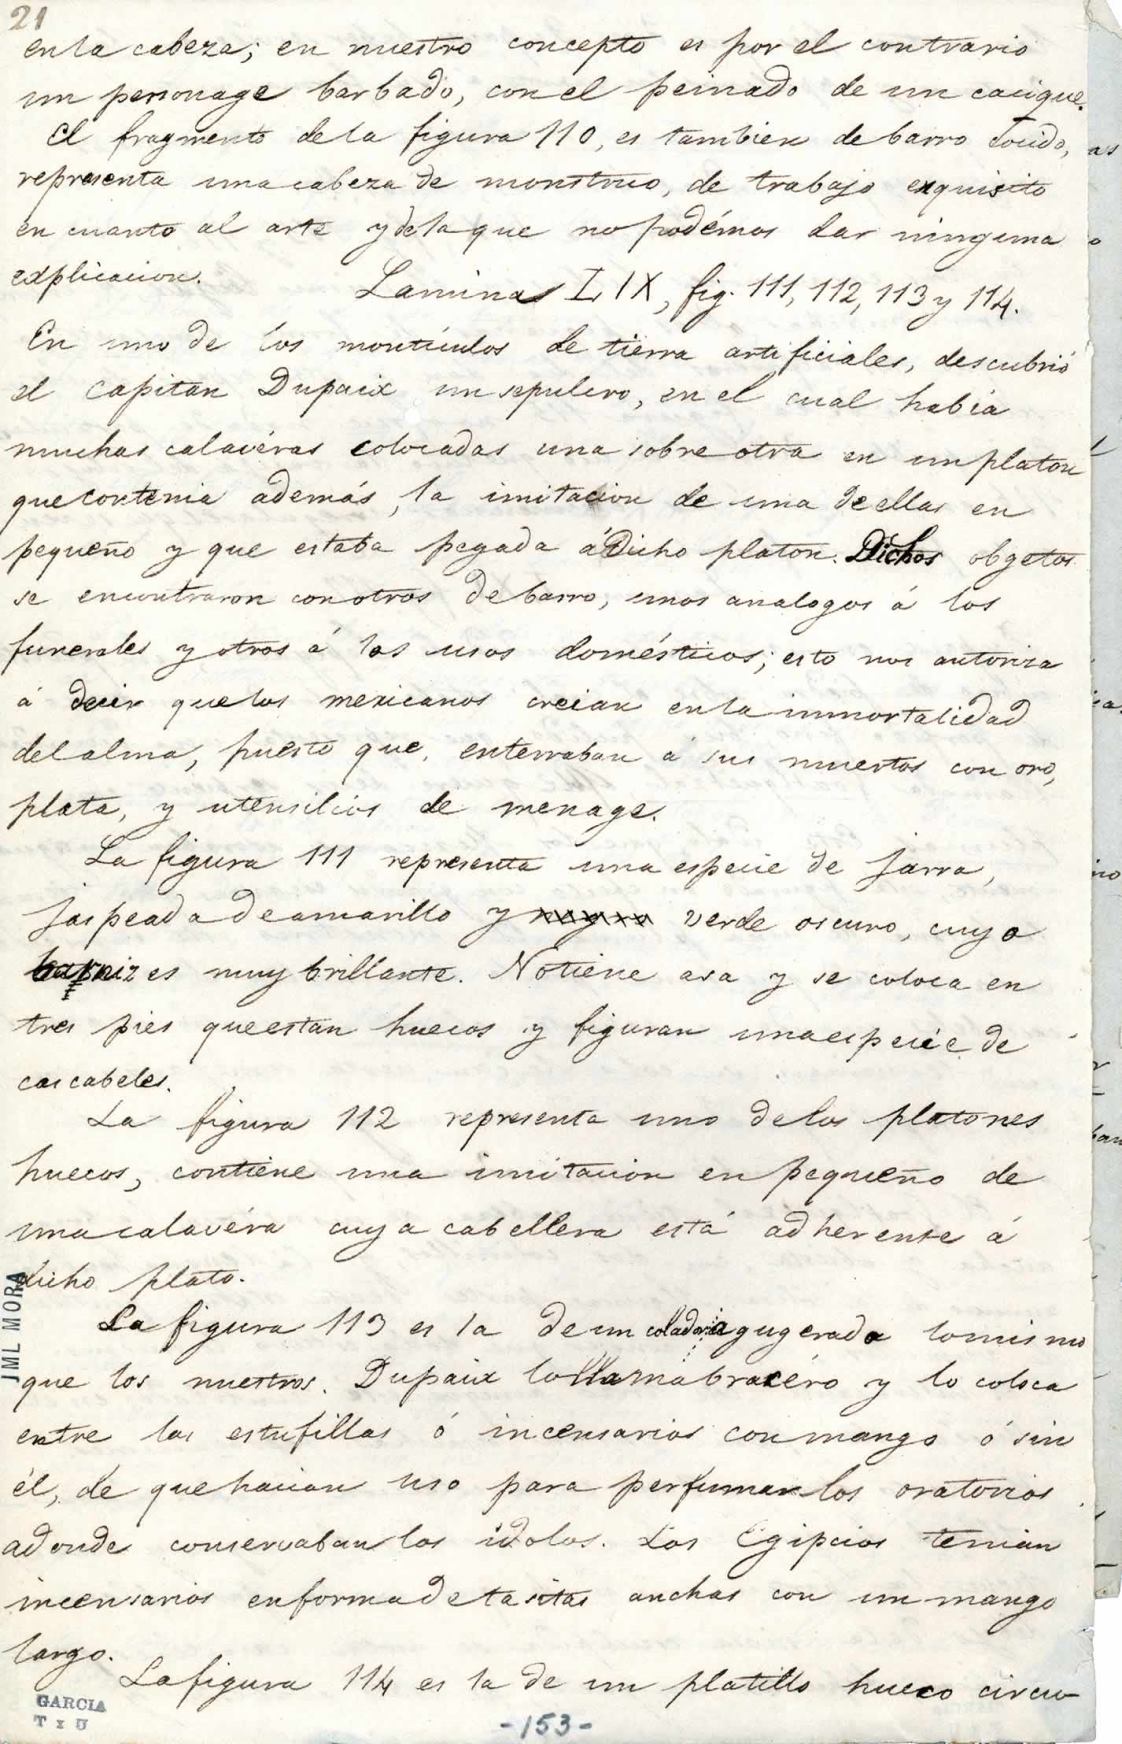 21
en la cabeza; en nuestro concepto es por el contrario
un personage barbado, con el peinado de un cacique.
El fragmento de la figura 110, es tambien de barro cocido,
representa una cabeza de monstruo, de trabajo exquisito
en cuanto al arte y de la que no podémos dar ninguna
explicacion.
Laminas LIX, fig. 111, 112, 113 y 114.
En uno de los montículos de tierra artificiales, descubrió
el capitan Dupaix un sepulcro, en el cual habia
muchas calavéras colocadas una sobre otra en un platon
que contenia además, la imitacion de una de ellas en
pequeño y que estaba pegada á dicho platon. Dichos obgetos
se encontraron con otros de barro, unos analogos á los
funerales y otros á los usos domésticos; esto nos autoriza
á decir que los mexicanos creian en la inmortalidad
del alma, puesto que, enterraban á sus muertos con oro,
plata, y utensilios de menage.
La figura 111 representa una especie de jarra,
jaspeada de amarillo y verde oscuro, cuyo
barniz es muy brillante. No tiene asa y se coloca en
tres pies que estan huecos y figuran una especie de
cascabeles.
La figura 112 representa uno de los platones
huecos, contiene una imitacion en pequeño de
una calavéra cuya cabellera está adherente á
dicho plato.
La figura 113 es la de un coladora agugerada lo mismo
que los nuestros. Dupaix lo llama bracéro y lo coloca
entre las estufillas ó incensarios con mango ó sin
él, de que hacian uso para perfumar los oratorios
adonde conservaban los idolos. Los Egipcios tenian
incensarios en forma de tasitas anchas con un mango
largo.
La figura 114 es la de un platillo hueco circu-
JML MORA
GARCIA
T x U
-153-